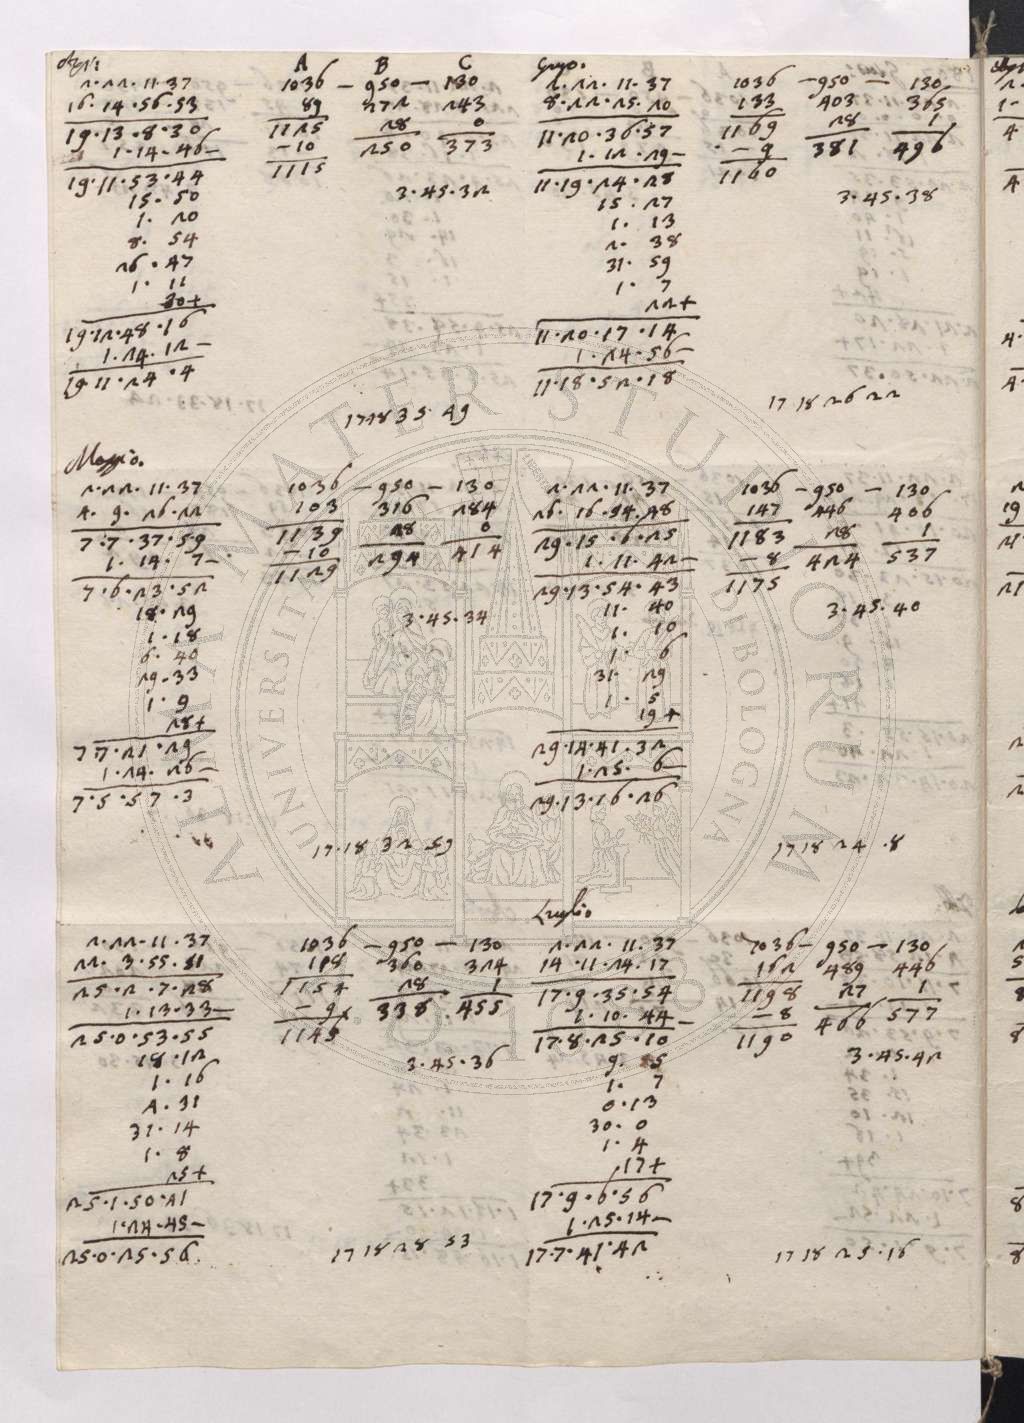 A B C
2.22.11.37 1036 — 950 — 130
16.14.56.53 89 272 243
19.13.8.30 1125 28 0
1.14.46— —10 250 373
19.11.53.44 1115
15.50 3.45.32
1.20
8.54
26.47
1.11
30+
19.12.48.16
1.24.12—
19.11.24.4
17 18 35 49
2.22.11.37 1036 — 950 — 130
8.22.25.20 133 403 365
11.20.36.57 1169 28 1
1.12.29— —9 381 496
11.19.24.28 1160
15.27 3.45.38
1.13
2.38
31.59
1.7
22+
11.20.17.14
1.24.56—
11.18.52.18
17 18 26 22
Maggio.
2.22.11.37 1036 — 950 — 130
4.9.26.22 103 316 284
7.7.37.59 1139 28 0
1.14.7— —10 294 414
7.6.23.52 1129
18.29 3.45.34
1.18
6.40
29.33
1.9
28+
7 7.21.29
1.24.26—
7.5.57.3
17.18 32 59
2.22.11.37 1036 — 950 — 130
26.16.54.48 147 446 406
29.15.6.25 1183 28 1
1.11.42— —8 424 537
29.13.54.43 1175
11.40 3.45.40
1.10
1.6
31.29
1.5
19+
29.14.41.32
1.25.6—
29.13.16.26
17 18 24.8
2.22.11.37 1036 — 950 — 130
22.3.55.51 118 360 324
25.2.7.28 1154 28 1
1.13.33— —9 338 455
25.0.53.55 1145
18.12 3.45.36
1.16
4.31
31.14
1.8
25+
25.1.50.41
1.24.45—
25.0.25.56
17 18 28 53
Luglio
2.22.11.37 1036 — 950 — 130
14.11.24.17 162 489 446
17.9.35.54 1198 27 1
1.10.44— —8 466 577
17.8.25.10 1190
9.55 3.45.42
1.7
0.13
30.0
1.4
17+
17.9.6.56
1.25.14—
17.7.41.42
17 18 25.16
ALMA MATER STUDIORUM
UNIVERSITÀ DI BOLOGNA